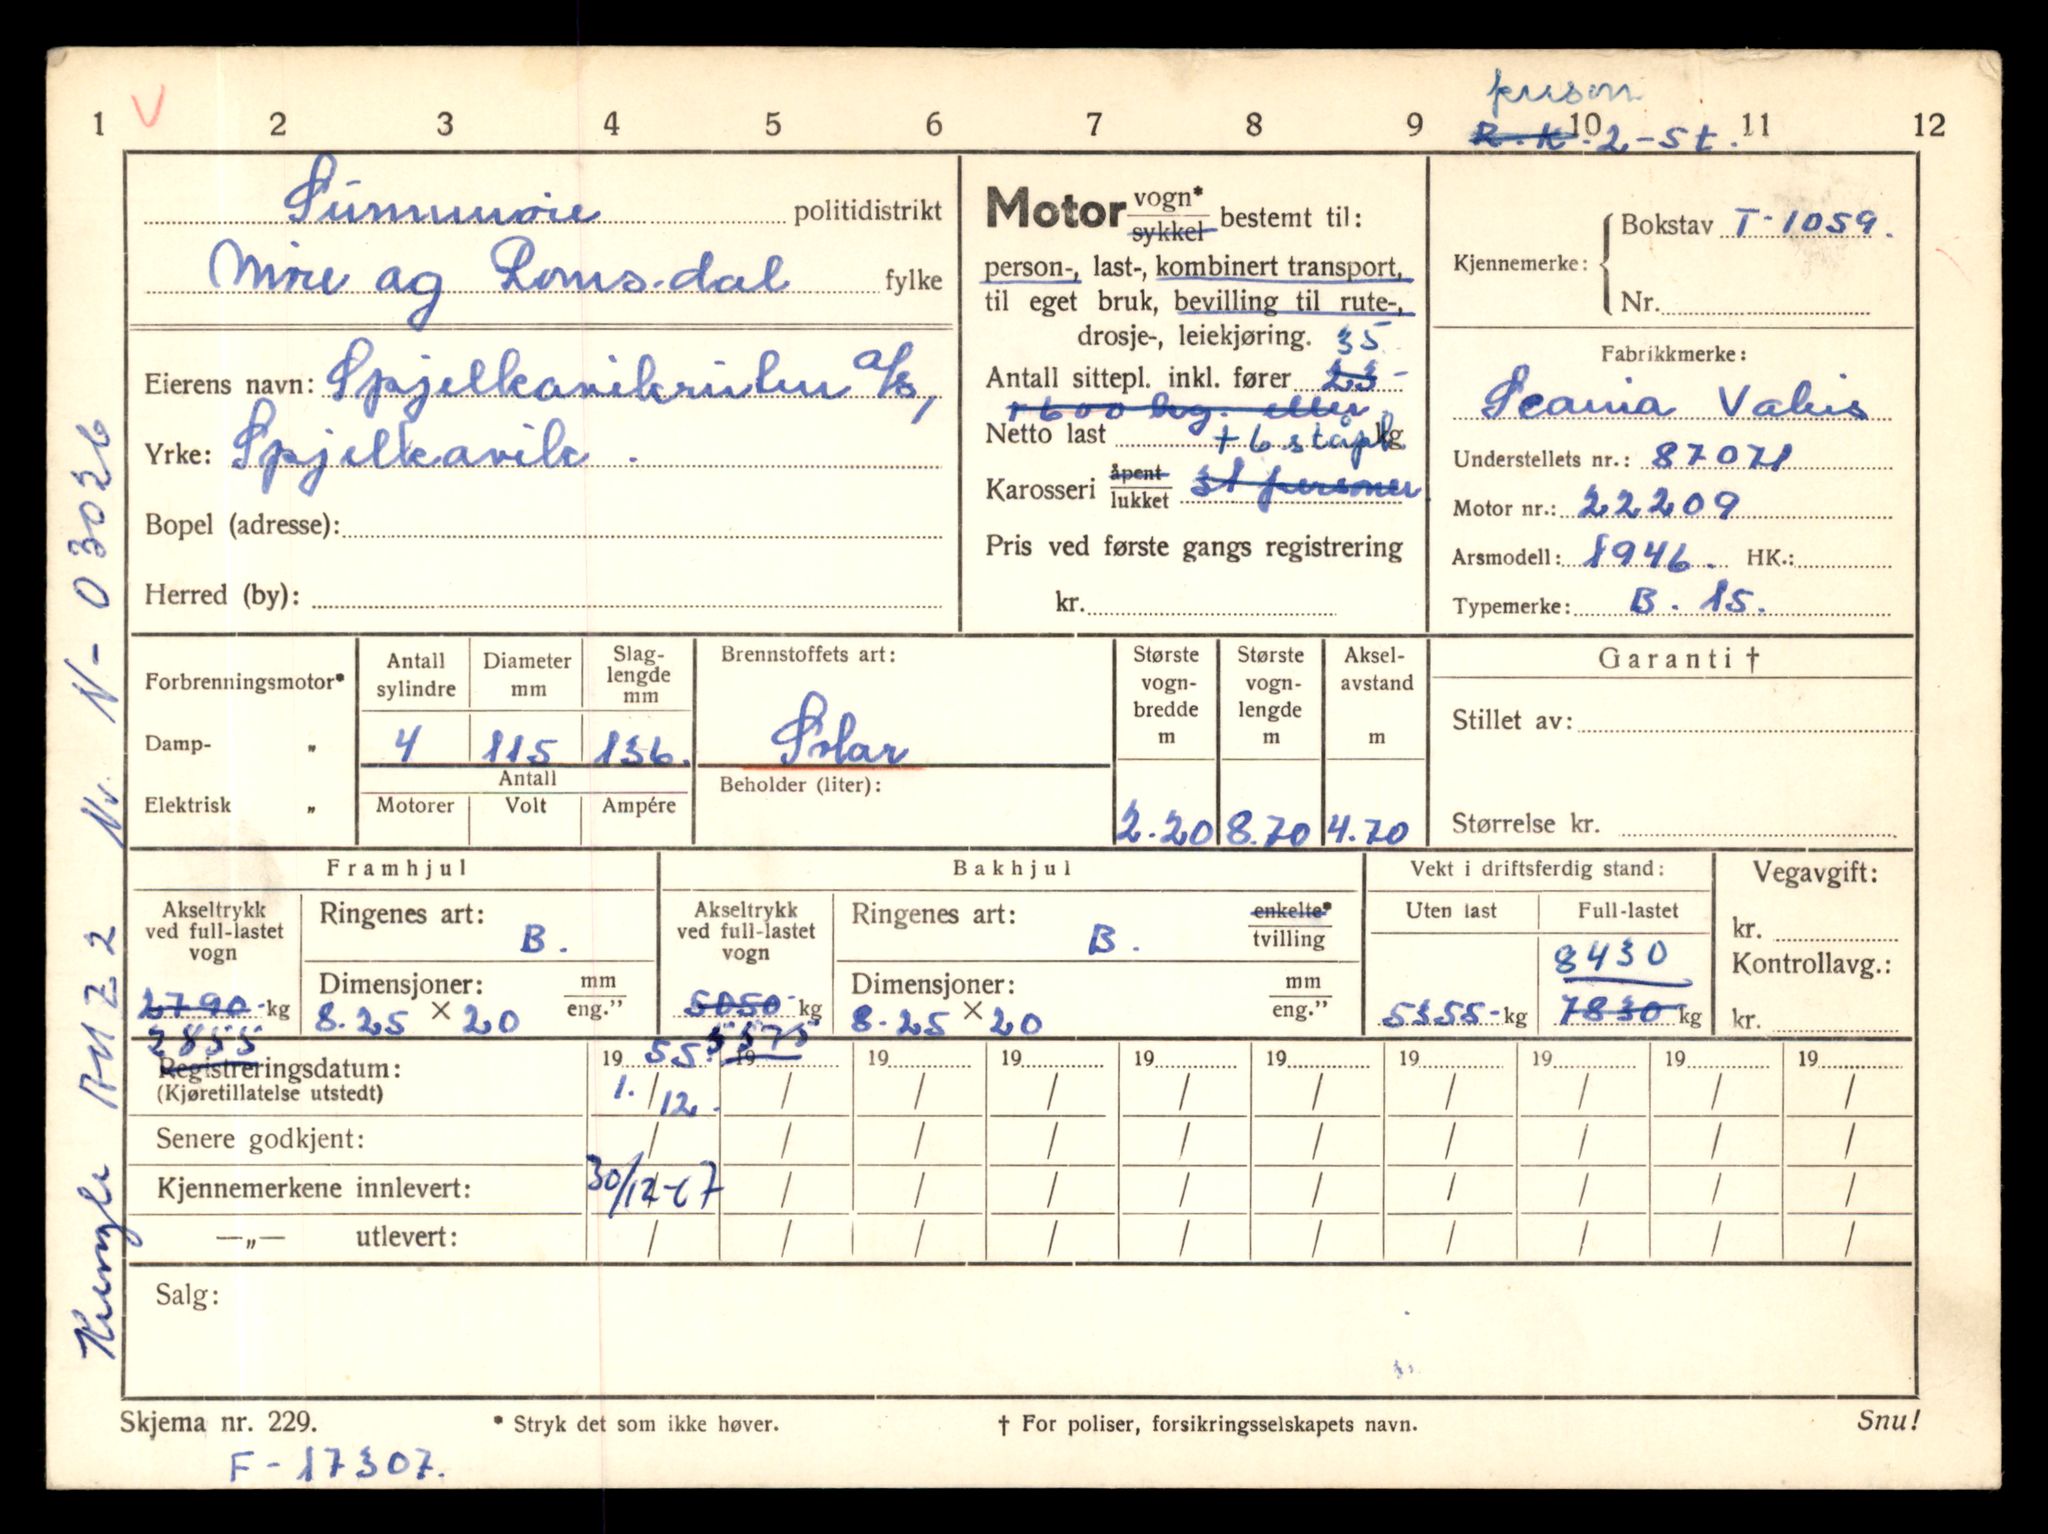 person
1 V 2 3 4 5 6 7 8 9 10 11 12
R.K. 2-St.
Sunnmøre politidistrikt
Møre og Romsdal fylke
Eierens navn: Spjelkavikruten a/s,
Yrke: Spjelkavik.
Bopel (adresse):
Herred (by):
Motor vogn* sykkel bestemt til:
person-, last-, kombinert transport,
til eget bruk, bevilling til rute-,
drosje-, leiekjøring. 35
Antall sittepl. inkl. fører 23 -
1600 kg. eller
Netto last + 6 ståpl kg
Karosseri åpent lukket 31 personer
Pris ved første gangs registrering
kr.
Kjennemerke: Bokstav T-1059.
Nr.
Fabrikkmerke:
Scania Vabis
Understellets nr.: 87071
Motor nr.: 22209
Arsmodell: 1946. HK.:
Typemerke: B. 15.
Forbrenningsmotor*
Damp- „
Elektrisk „
Antall sylindre Diameter mm Slaglengde mm
4 115 136.
Antall
Motorer Volt Ampére
Brennstoffets art:
Solar
Beholder (liter):
Største vognbredde m 2.20
Største vognlengde m 8.70
Akselavstand m 4.70
Garanti †
Stillet av:
Størrelse kr.
Framhjul
Akseltrykk ved full-lastet vogn
2790- kg
2855
Ringenes art: B.
Dimensjoner: mm eng.”
8.25 × 20
Bakhjul
Akseltrykk ved full-lastet vogn
5050- kg
5575
Ringenes art: B. enkelte* tvilling
Dimensjoner: mm eng.”
8.25 × 20
Vekt i driftsferdig stand:
Uten last Full-lastet
8430
5355- kg 7830 kg
Vegavgift:
kr.
Kontrollavg.:
kr.
Registreringsdatum: 19 55. 19 19 19 19 19 19 19 19 19
(Kjøretillatelse utstedt) 1. / 12. / / / / / / / / /
Senere godkjent: / / / / / / / / / /
Kjennemerkene innlevert: 30/12-67 / / / / / / / / /
—„— utlevert: / / / / / / / / / /
Salg:
Skjema nr. 229. * Stryk det som ikke høver. † For poliser, forsikringsselskapets navn. Snu!
F-17307.
Nr. N-03026